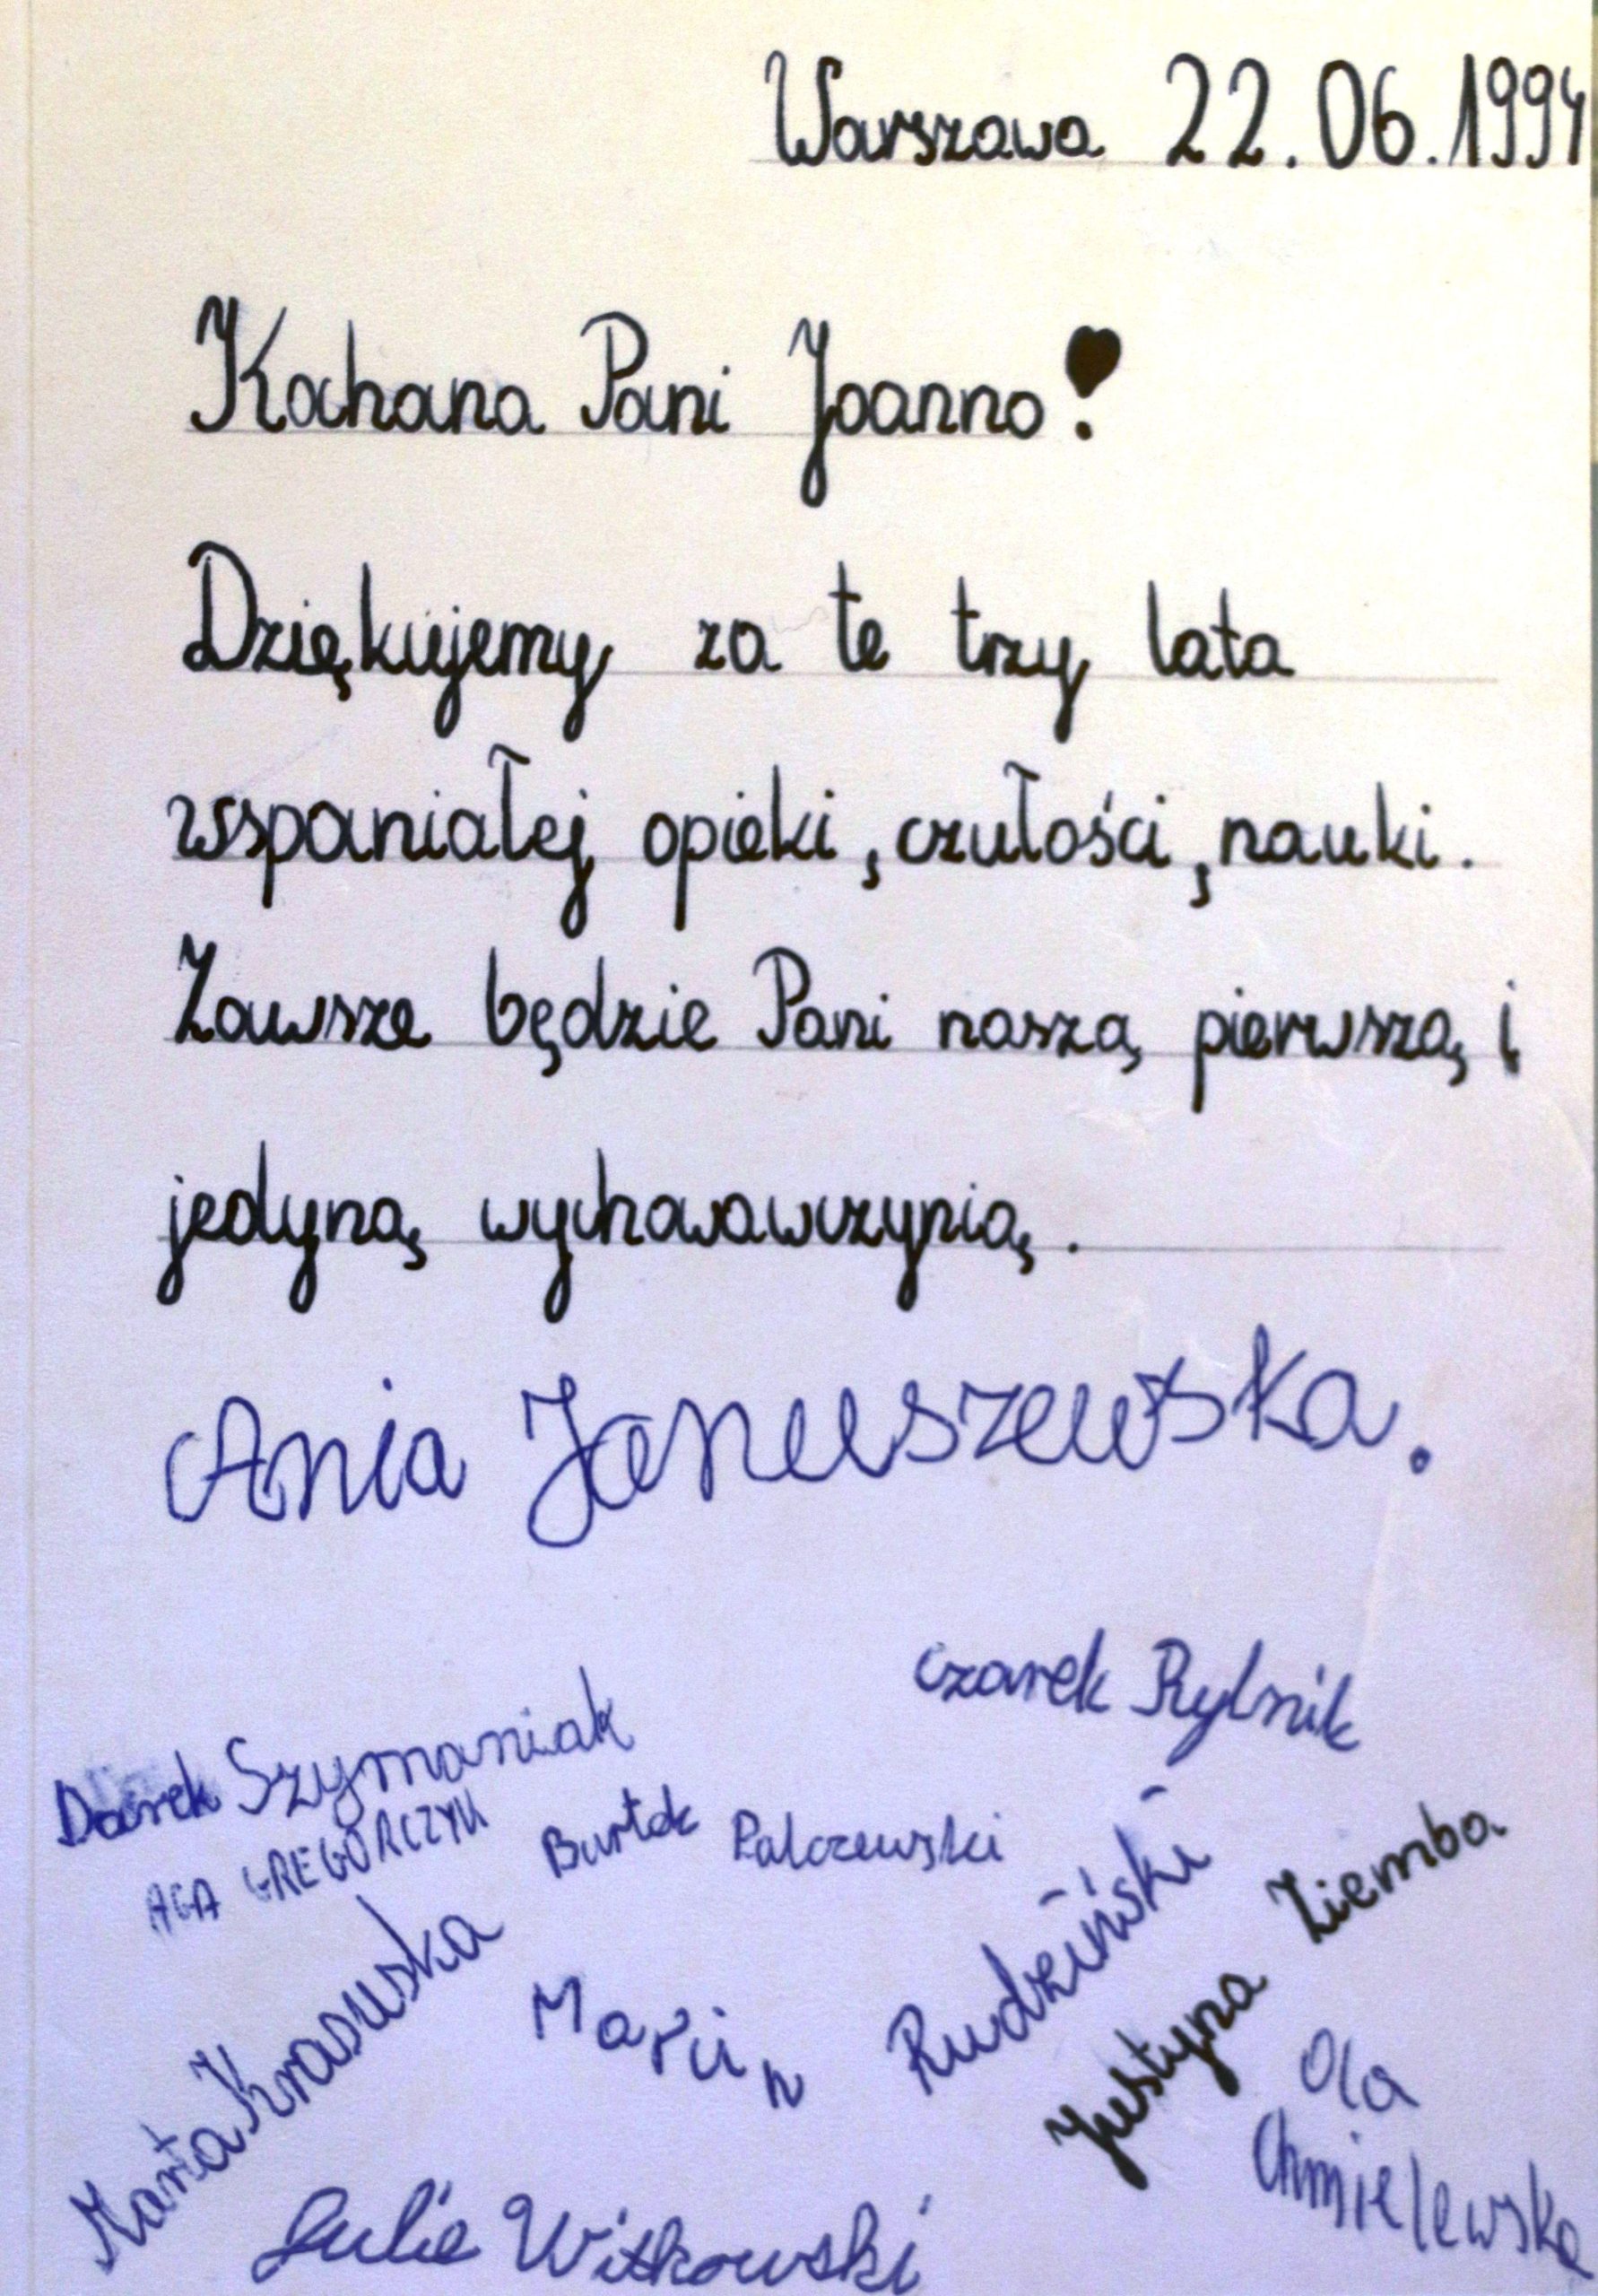 Warszawa 22.06.1994
Kochana Pani Joanno!
Dziękujemy za te trzy lata
wspaniałej opieki, czułości, nauki.
Zawsze będzie Pani naszą pierwszą i
jedyną wychowawczynią.
Ania Januszewska.
Czarek Rylsnik
Darek Szymaniak
AGA GREGORCZYK
Bartek Palczewski
Marta Krasuska
Marcin Rudziński
Justyna Ziemba
Ola
Chmielewska
Witkowski